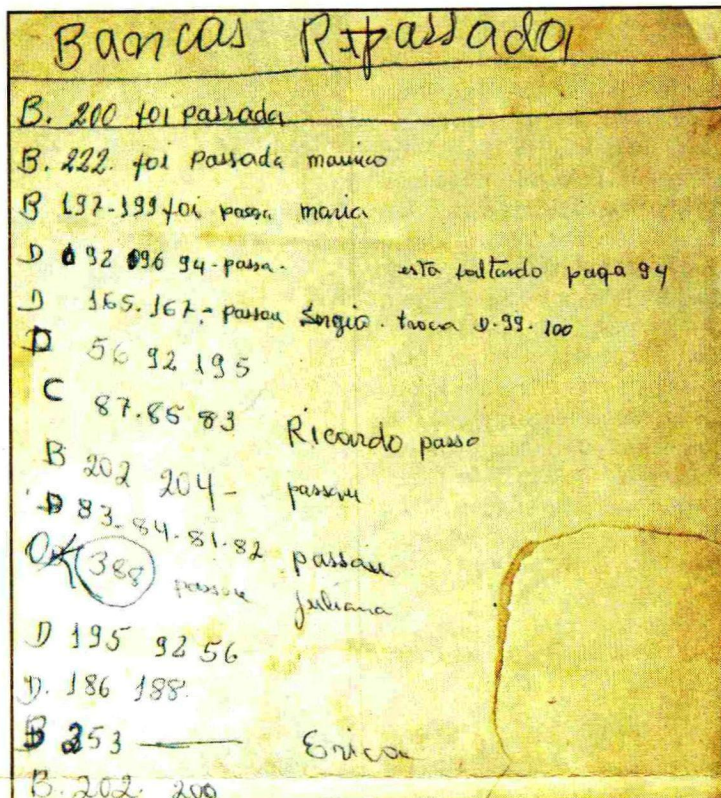 Bancas Repassada
B. 200 foi passada
B. 222. foi Passada
B 197-199 foi passa maria
D 92 96 94-passa. esta faltando paga 94
D 165.167- passou Sergio. troca D.99.100
D 56 92 195
C 87.85 83 Ricardo passo
B 202 204- passou
D 83-84.81.82 passou
OK 388 passou Juliana
D 195 92 56
D. 186 188.
B 253 — Erica
B. 202. 200